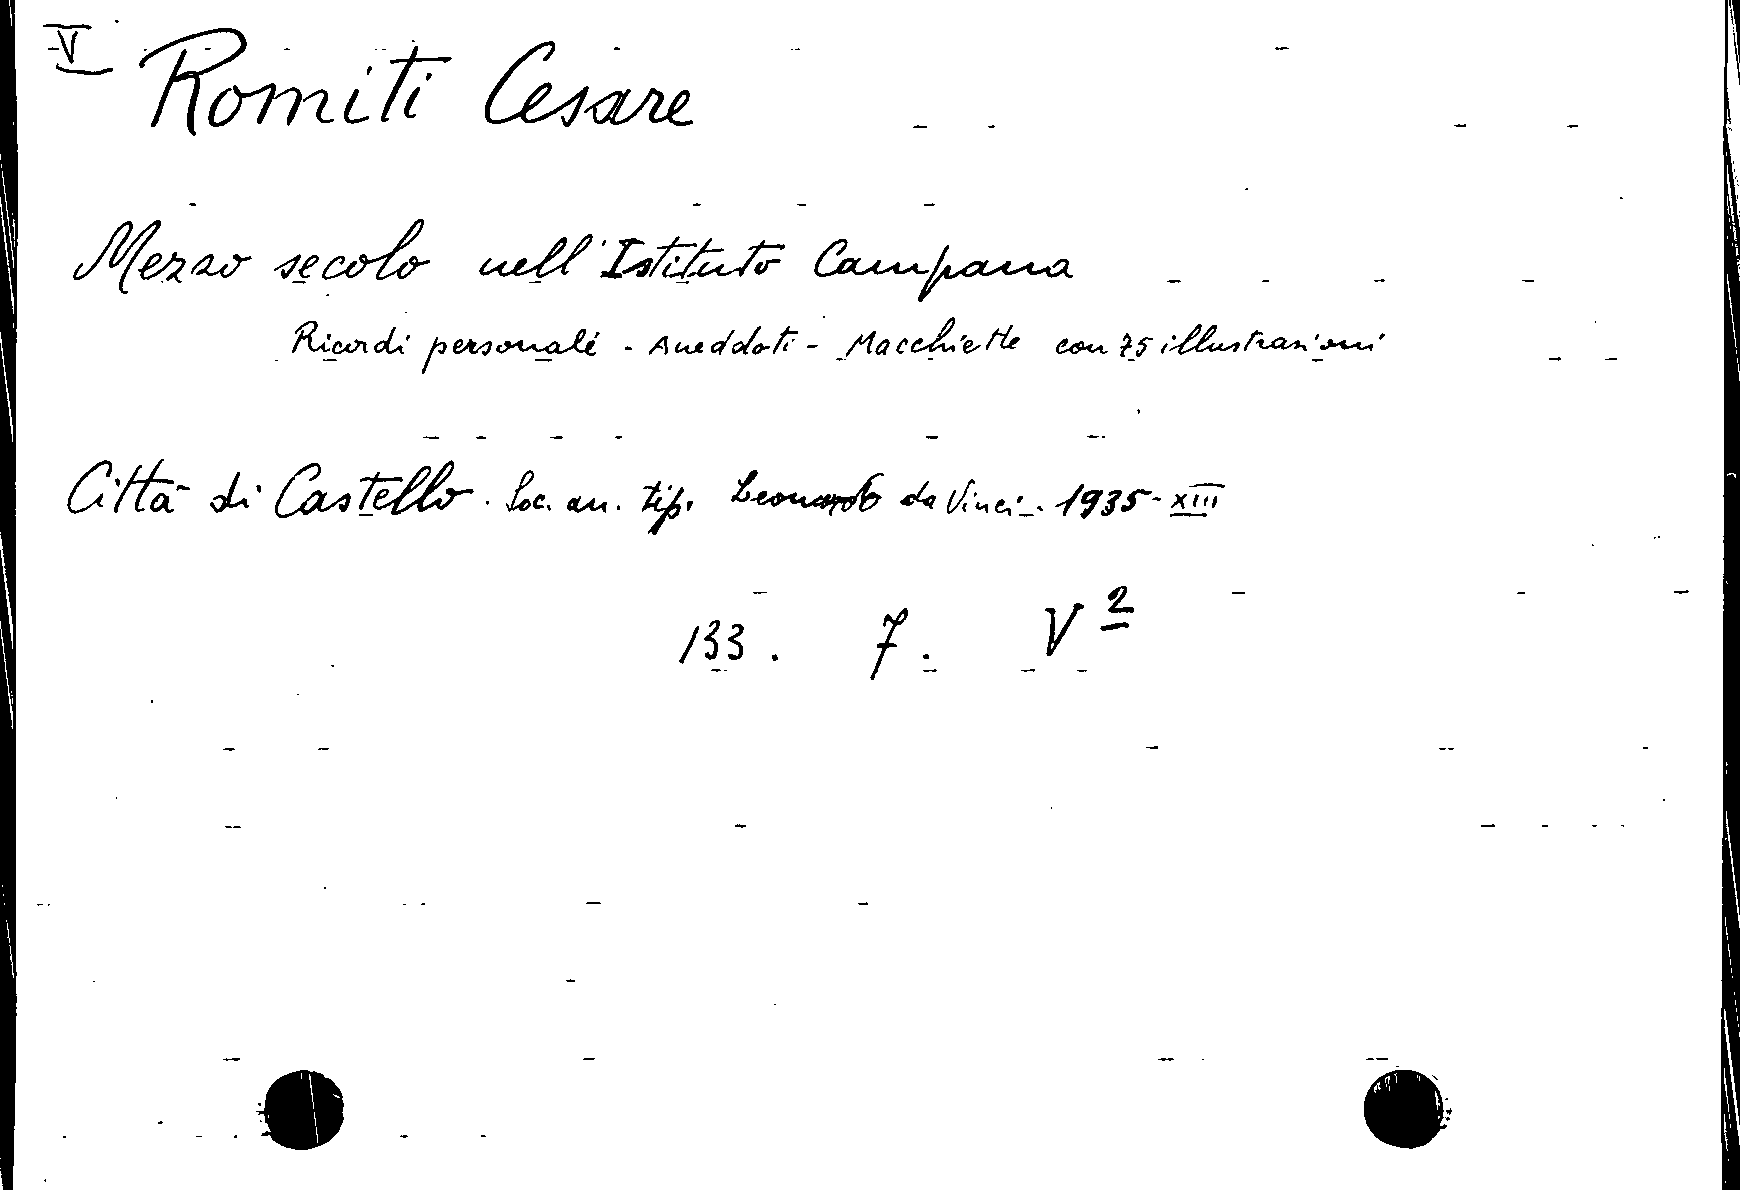 V
Romiti Cesare
Mezzo secolo nell'Istituto Campana
Ricordi personali - Aneddoti - Macchiette con 75 illustrazioni
Città di Castello. Soc. an. tip. Leonardo da Vinci. 1935 - XIII
133. 7. V²